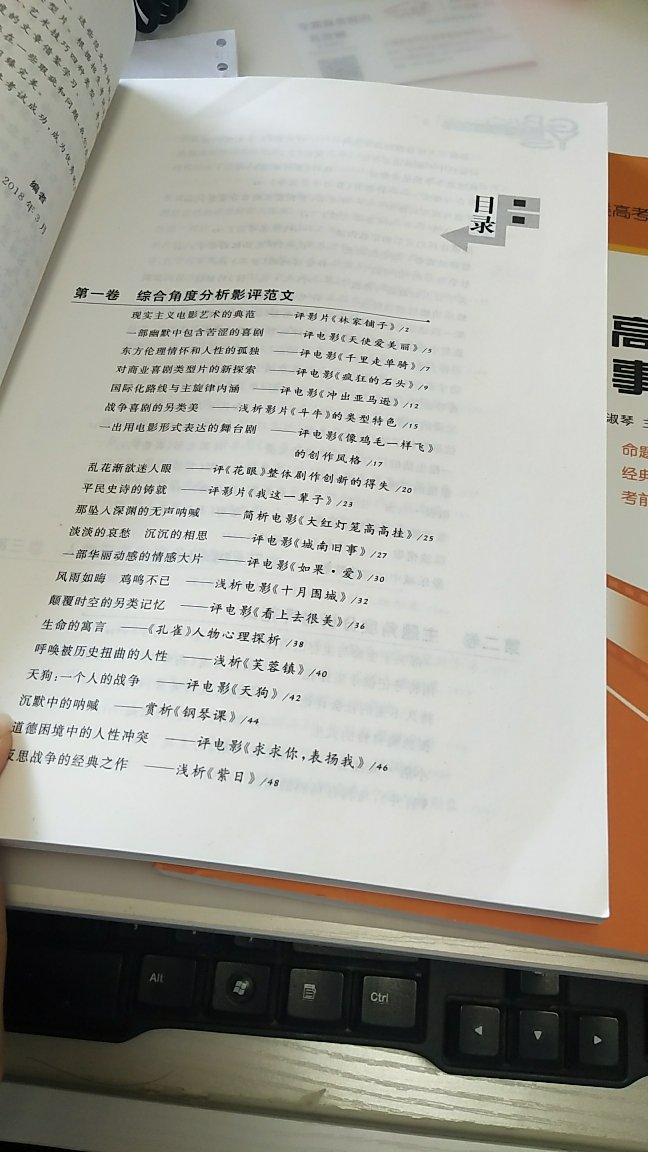 编者
2018年3月
目录
第一卷 综合角度分析影评范文
现实主义电影艺术的典范 ——评影片《林家铺子》/2
一部幽默中包含苦涩的喜剧 ——评电影《天使爱美丽》/5
东方伦理情怀和人性的孤独 ——评电影《千里走单骑》/7
对商业喜剧类型片的新探索 ——评电影《疯狂的石头》/9
国际化路线与主旋律内涵 ——评电影《冲出亚马逊》/12
战争喜剧的另类美 ——浅析影片《斗牛》的类型特色 /15
一出用电影形式表达的舞台剧 ——评电影《像鸡毛一样飞》
的创作风格 /17
乱花渐欲迷人眼 ——评《花眼》整体剧作创新的得失 /20
平民史诗的铸就 ——评影片《我这一辈子》/23
那坠入深渊的无声呐喊 ——简析电影《大红灯笼高高挂》/25
淡淡的哀愁 沉沉的相思 ——评电影《城南旧事》/27
一部华丽动感的情感大片 ——评电影《如果·爱》/30
风雨如晦 鸡鸣不已 ——浅析电影《十月围城》/32
颠覆时空的另类记忆 ——评电影《看上去很美》/36
生命的寓言 ——《孔雀》人物心理探析 /38
呼唤被历史扭曲的人性 ——浅析《芙蓉镇》/40
天狗:一个人的战争 ——评电影《天狗》/42
沉默中的呐喊 ——赏析《钢琴课》/44
道德困境中的人性冲突 ——评电影《求求你,表扬我》/46
反思战争的经典之作 ——浅析《紫日》/48
高考
高
事
淑琴
命题
经典
考前
Alt
Ctrl